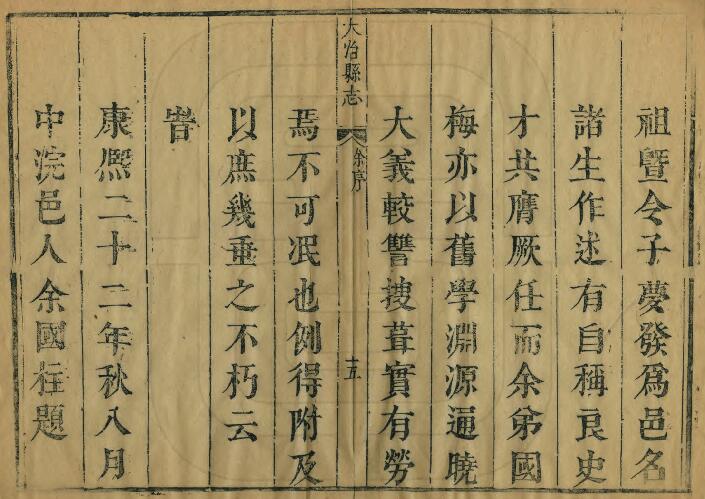 祖曁令子夢發爲邑名
諸生作述有自稱良史
才共膺厥任而余弟國
梅亦以舊學淵源通曉
大義較讐搜葺實有勞
大冶縣志
余序
十五
焉不可泯也例得附及
以庶幾垂之不朽云
旹
康熙二十二年秋八月
中浣邑人余國柱題